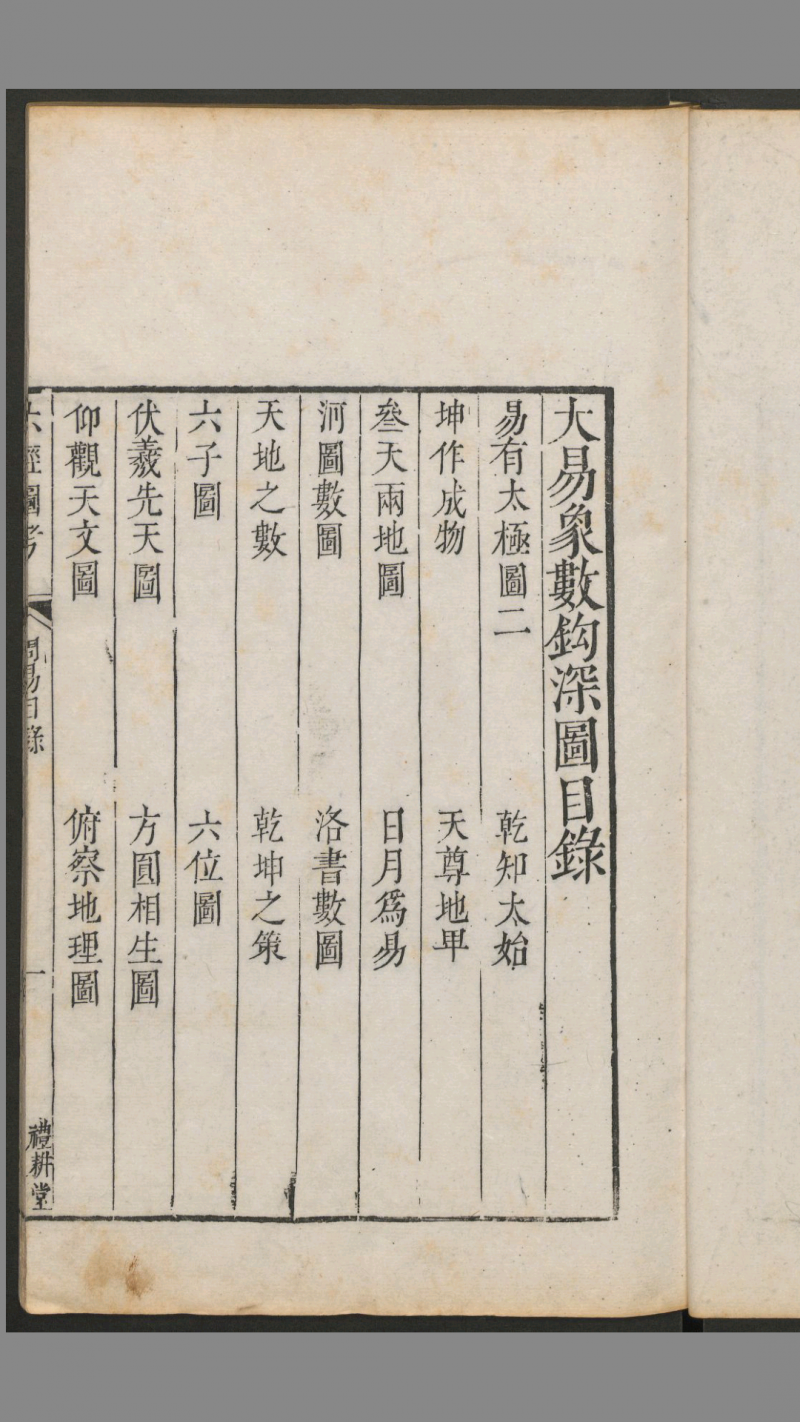 大易象數鈎深圖目錄
易有太極圖二　乾知太始
坤作成物　天尊地卑
叄天兩地圖　日月爲易
河圖數圖　洛書數圖
天地之數　乾坤之策
六子圖　六位圖
伏羲先天圖　方圓相生圖
仰觀天文圖　俯察地理圖
六經圖考　周易目錄　一　禮耕堂